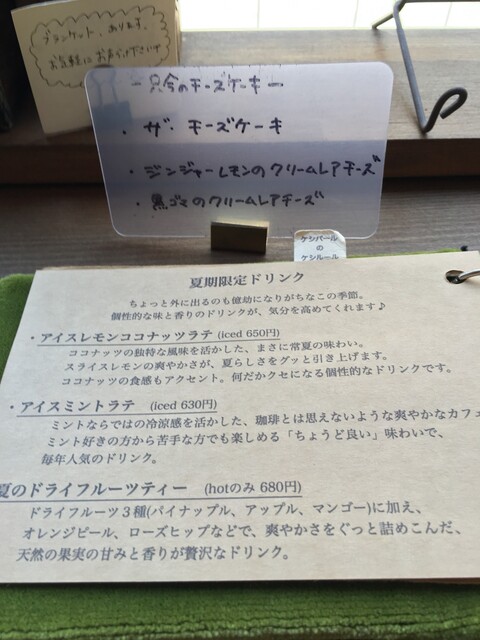 ブランケット、あります。
お気軽にお声がけ下さい
一只今のチーズケーキー
・ ザ・チーズケーキ
・ ジンジャーレモンのクリームレアチーズ
・ 黒ゴマのクリームレアチーズ
ケシパール
の
ケシルール
夏期限定ドリンク
ちょっと外に出るのも億劫になりがちなこの季節。
個性的な味と香りのドリンクが、気分を高めてくれます♪
・アイスレモンココナッツラテ (iced 650円)
ココナッツの独特な風味を活かした、まさに常夏の味わい。
スライスレモンの爽やかさが、夏らしさをグッと引き上げます。
ココナッツの食感もアクセント。何だかクセになる個性的なドリンクです。
・アイスミントラテ (iced 630円)
ミントならではの冷涼感を活かした、珈琲とは思えないような爽やかなカフェ
ミント好きの方から苦手な方でも楽しめる「ちょうど良い」味わいで、
毎年人気のドリンク。
夏のドライフルーツティー (hotのみ 680円)
ドライフルーツ3種(パイナップル、アップル、マンゴー)に加え、
オレンジピール、ローズヒップなどで、爽やかさをぐっと詰めこんだ、
天然の果実の甘みと香りが贅沢なドリンク。